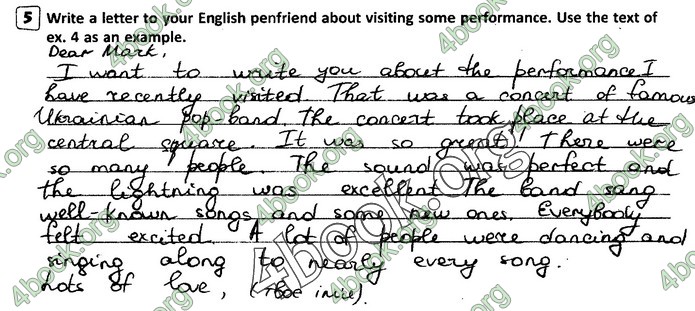 5 Write a letter to your English penfriend about visiting some performance. Use the text of
ex. 4 as an example.
Dear Mark,
I want to write you about the performance I
have recently visited. That was a concert of famous
Ukrainian pop-band. The concert took place at the
central square. It was so great! There were
so many people. The sound was perfect and
the lightning was excellent. The band sang
well-known songs and some new ones. Everybody
felt excited. A lot of people were dancing and
singing along to nearly every song.
Lots of love, (твоє ім'я).
4book.org